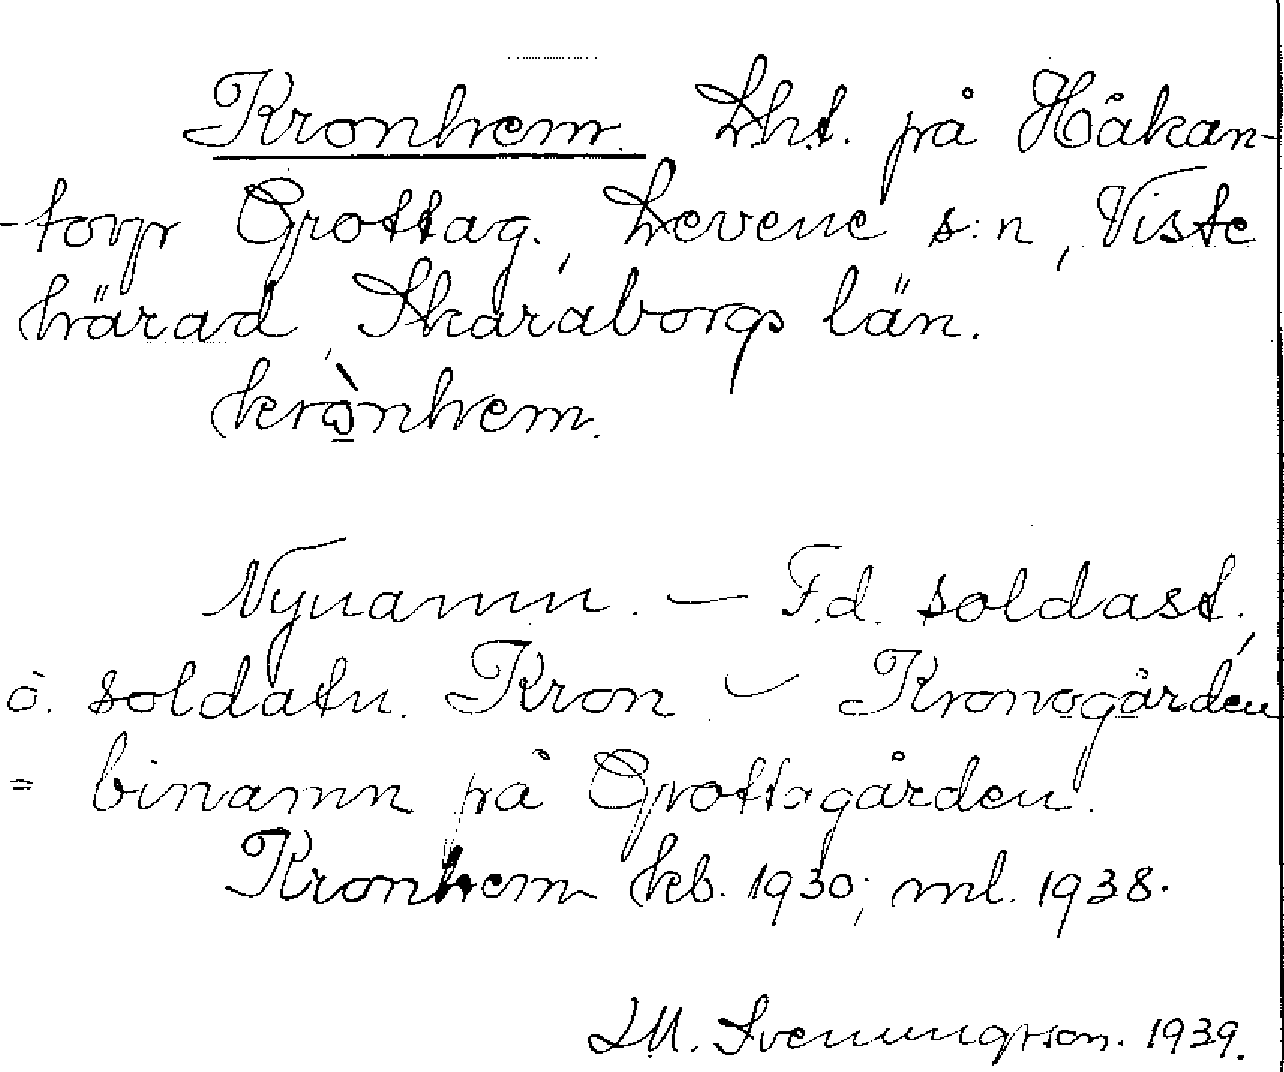 Kronhem. Lht. på Håkan-
-torp Grottag., Levene s:n, Viste
härad, Skaraborgs län.
krònhem.
Nynamn. — F.d. soldatst.,
o. soldatn. Kron — Kronogården
= binamn på Grottagården.
Kronhem kb. 1930; ml. 1938.
Svenungsson. 1939.